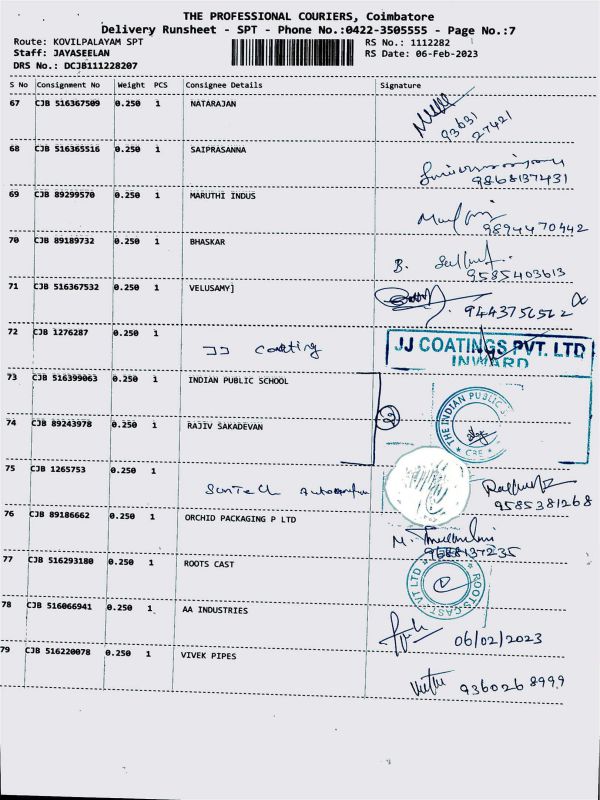 THE PROFESSIONAL COURIERS, Coimbatore
Delivery Runsheet - SPT - Phone No.:0422-3505555 - Page No.:7
Route: KOVILPALAYAM SPT RS No.: 1112282
Staff: JAYASEELAN RS Date: 06-Feb-2023
DRS No.: DCJB111228207
S No Consignment No Weight PCS Consignee Details Signature
67 CJB 516367509 0.250 1 NATARAJAN
93631
27421
68 CJB 516365516 0.250 1 SAIPRASANNA
9868137431
69 CJB 89299570 0.250 1 MARUTHI INDUS
9894470442
70 CJB 89189732 0.250 1 BHASKAR B.
9585403613
71 CJB 516367532 0.250 1 VELUSAMY]
9443756562
72 CJB 1276287 0.250 1 JJ Coating JJ COATINGS PVT. LTD
INWARD
73 CJB 516399063 0.250 1 INDIAN PUBLIC SCHOOL THE INDIAN PUBLIC S
CBE
74 CJB 89243978 0.250 1 RAJIV SAKADEVAN 2
75 CJB 1265753 0.250 1 SunTech
9585381268
76 CJB 89186662 0.250 1 ORCHID PACKAGING P LTD M.
9688137235
77 CJB 516293180 0.250 1 ROOTS CAST ROOTS CAST PVT LTD
78 CJB 516066941 0.250 1 AA INDUSTRIES 06/02/2023
79 CJB 516220078 0.250 1 VIVEK PIPES 9360268999